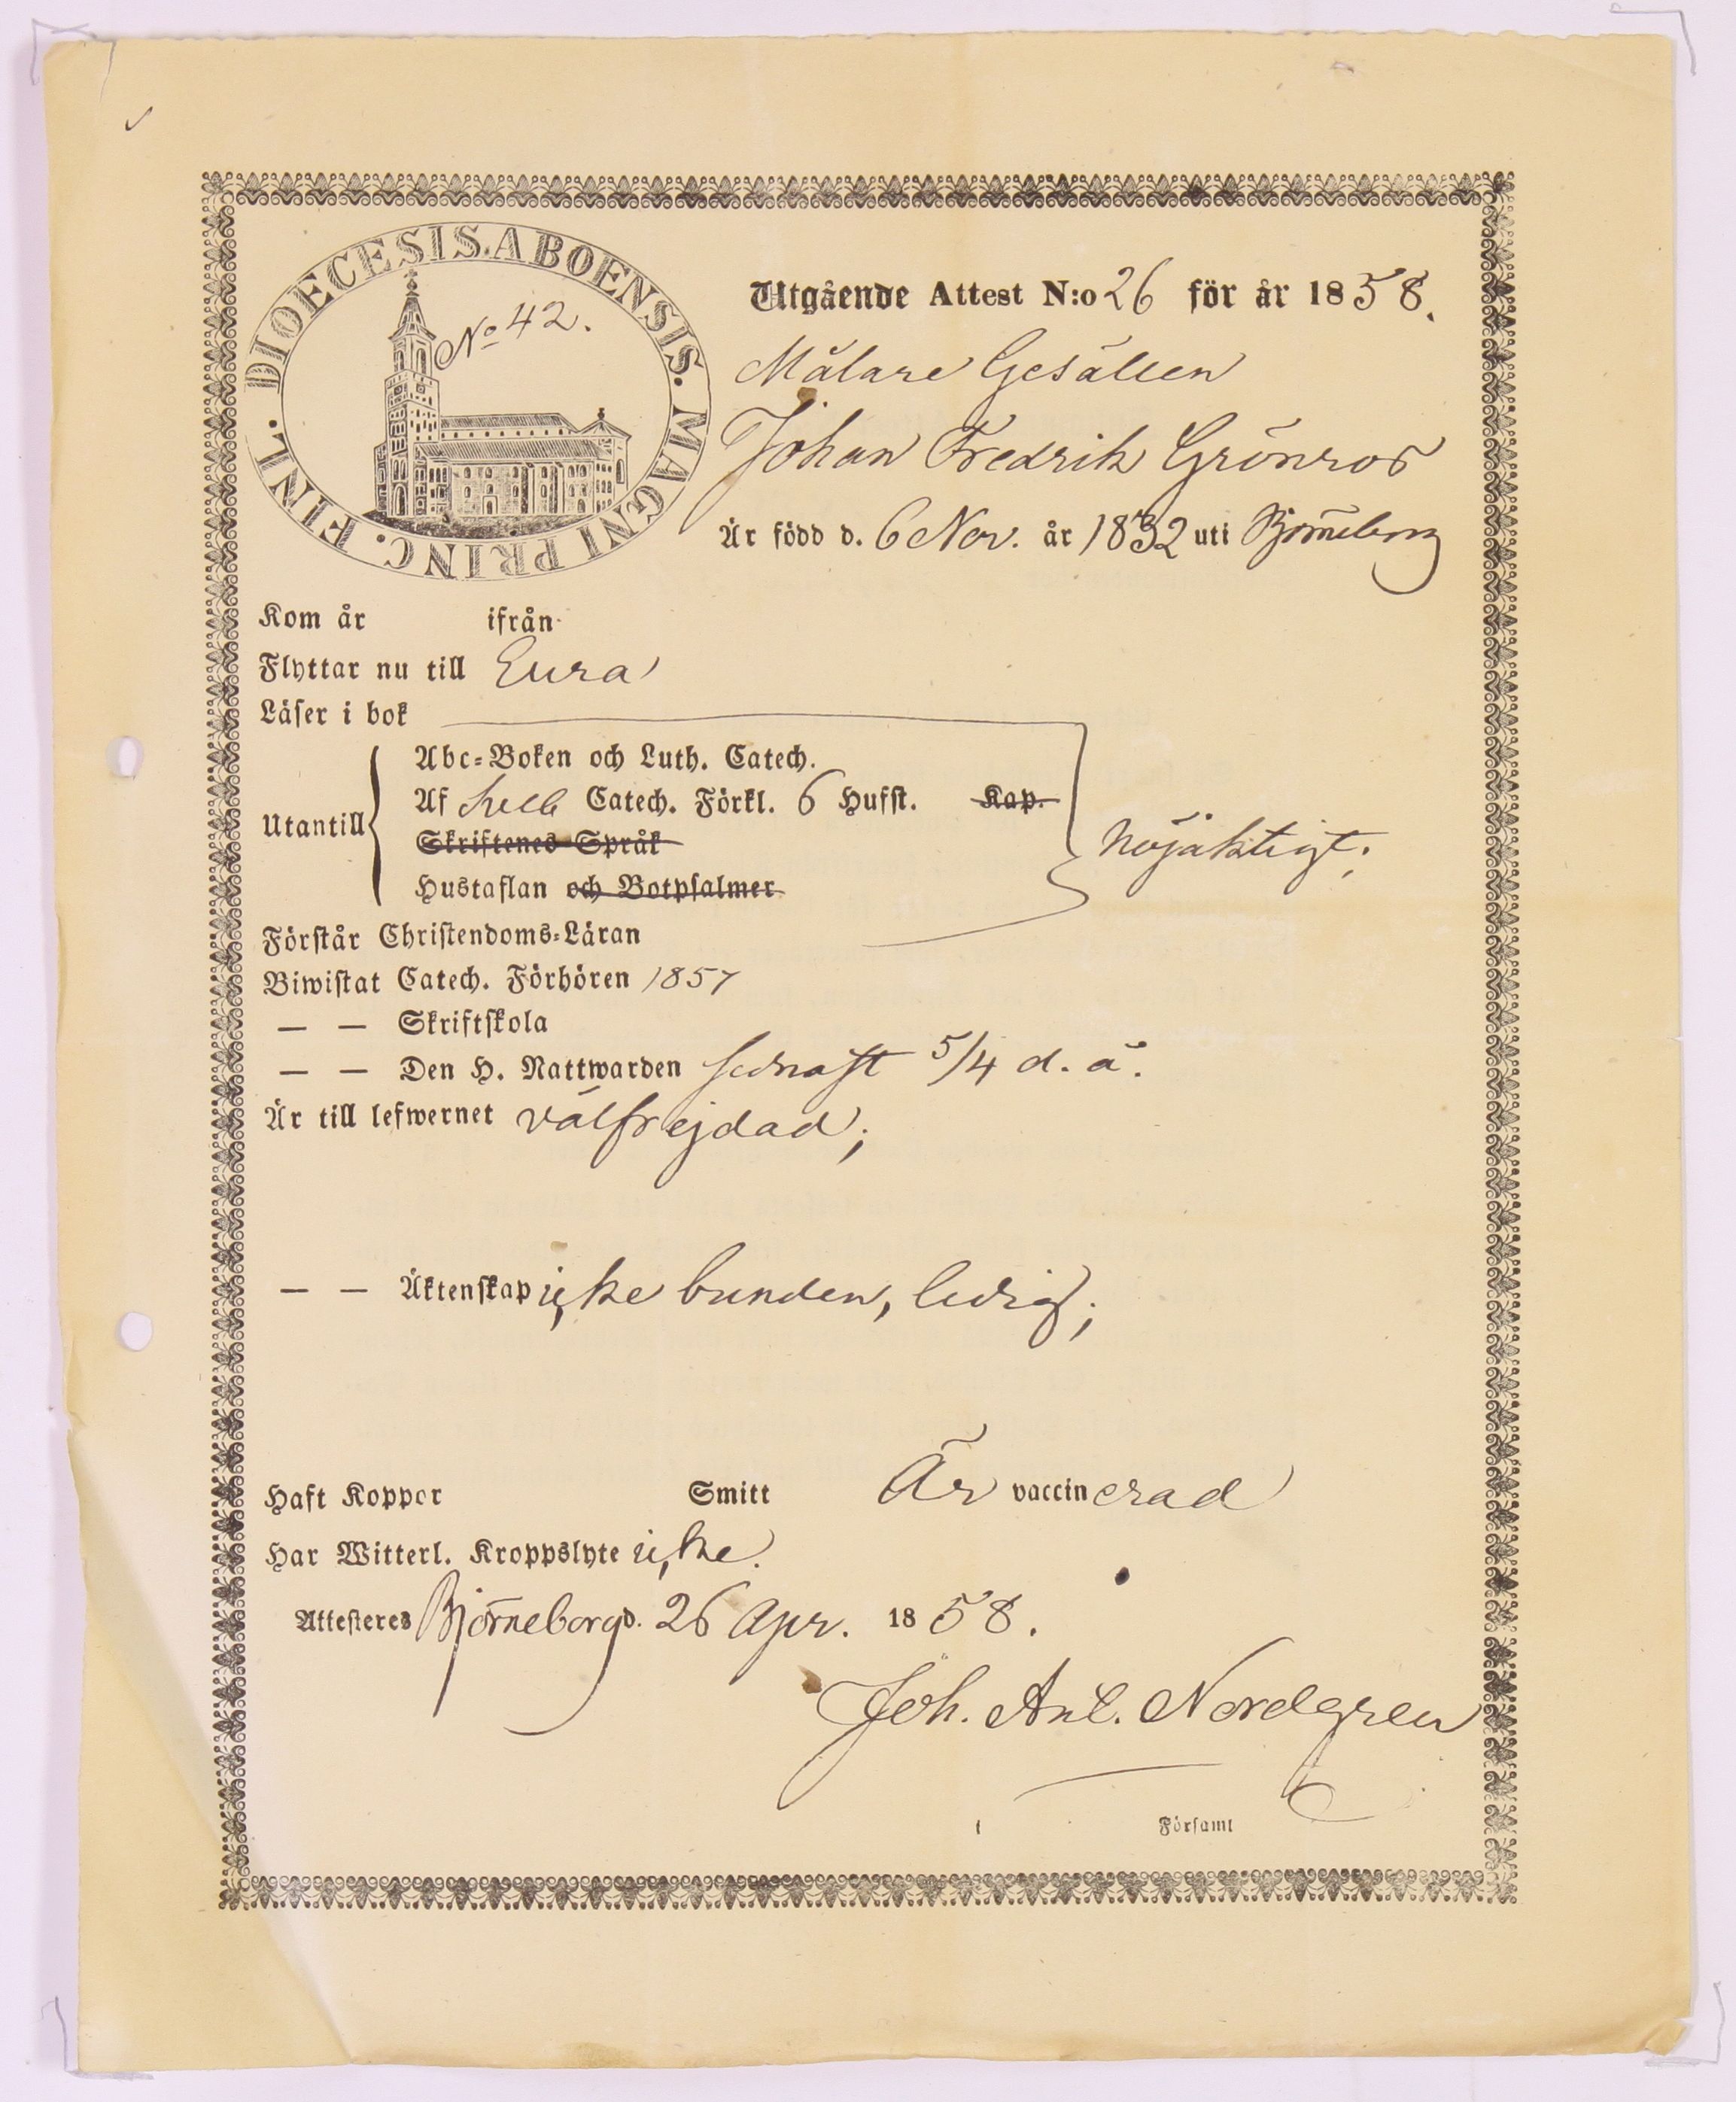 DIOECESIS. ABOENSIS. MAGNI PRINC. FINL.
No 42.
Utgående Attest N:o 26 för år 1858.
Målare Gesällen
Johan Fredrik Grönros
Är född d. 6 Nov. år 1832 uti Björneborg
Kom år ifrån
Flyttar nu till Eura
Läser i bok
Utantill
Abc-Boken och Luth. Catech.
Af Catech. Förkl. 6 Hufst. Kap.
Skriftenes Språk
Hustaflan och Botpsalmer
nöjaktigt;
Förstår Christendoms-Läran
Biwistat Catech. Förhören 1857
— — Skriftskola
— — Den H. Nattwarden sednast 5/4 d. å.
Är till lefwernet välfrejdad;
— — Äktenskap icke bunden, ledig;
Haft Koppor Smitt Är vaccinerad
Har Witterl. Kroppslyte icke.
Attesteres Björneborg d. 26 Apr. 1858.
Joh. Ant. Nordgren
Församl